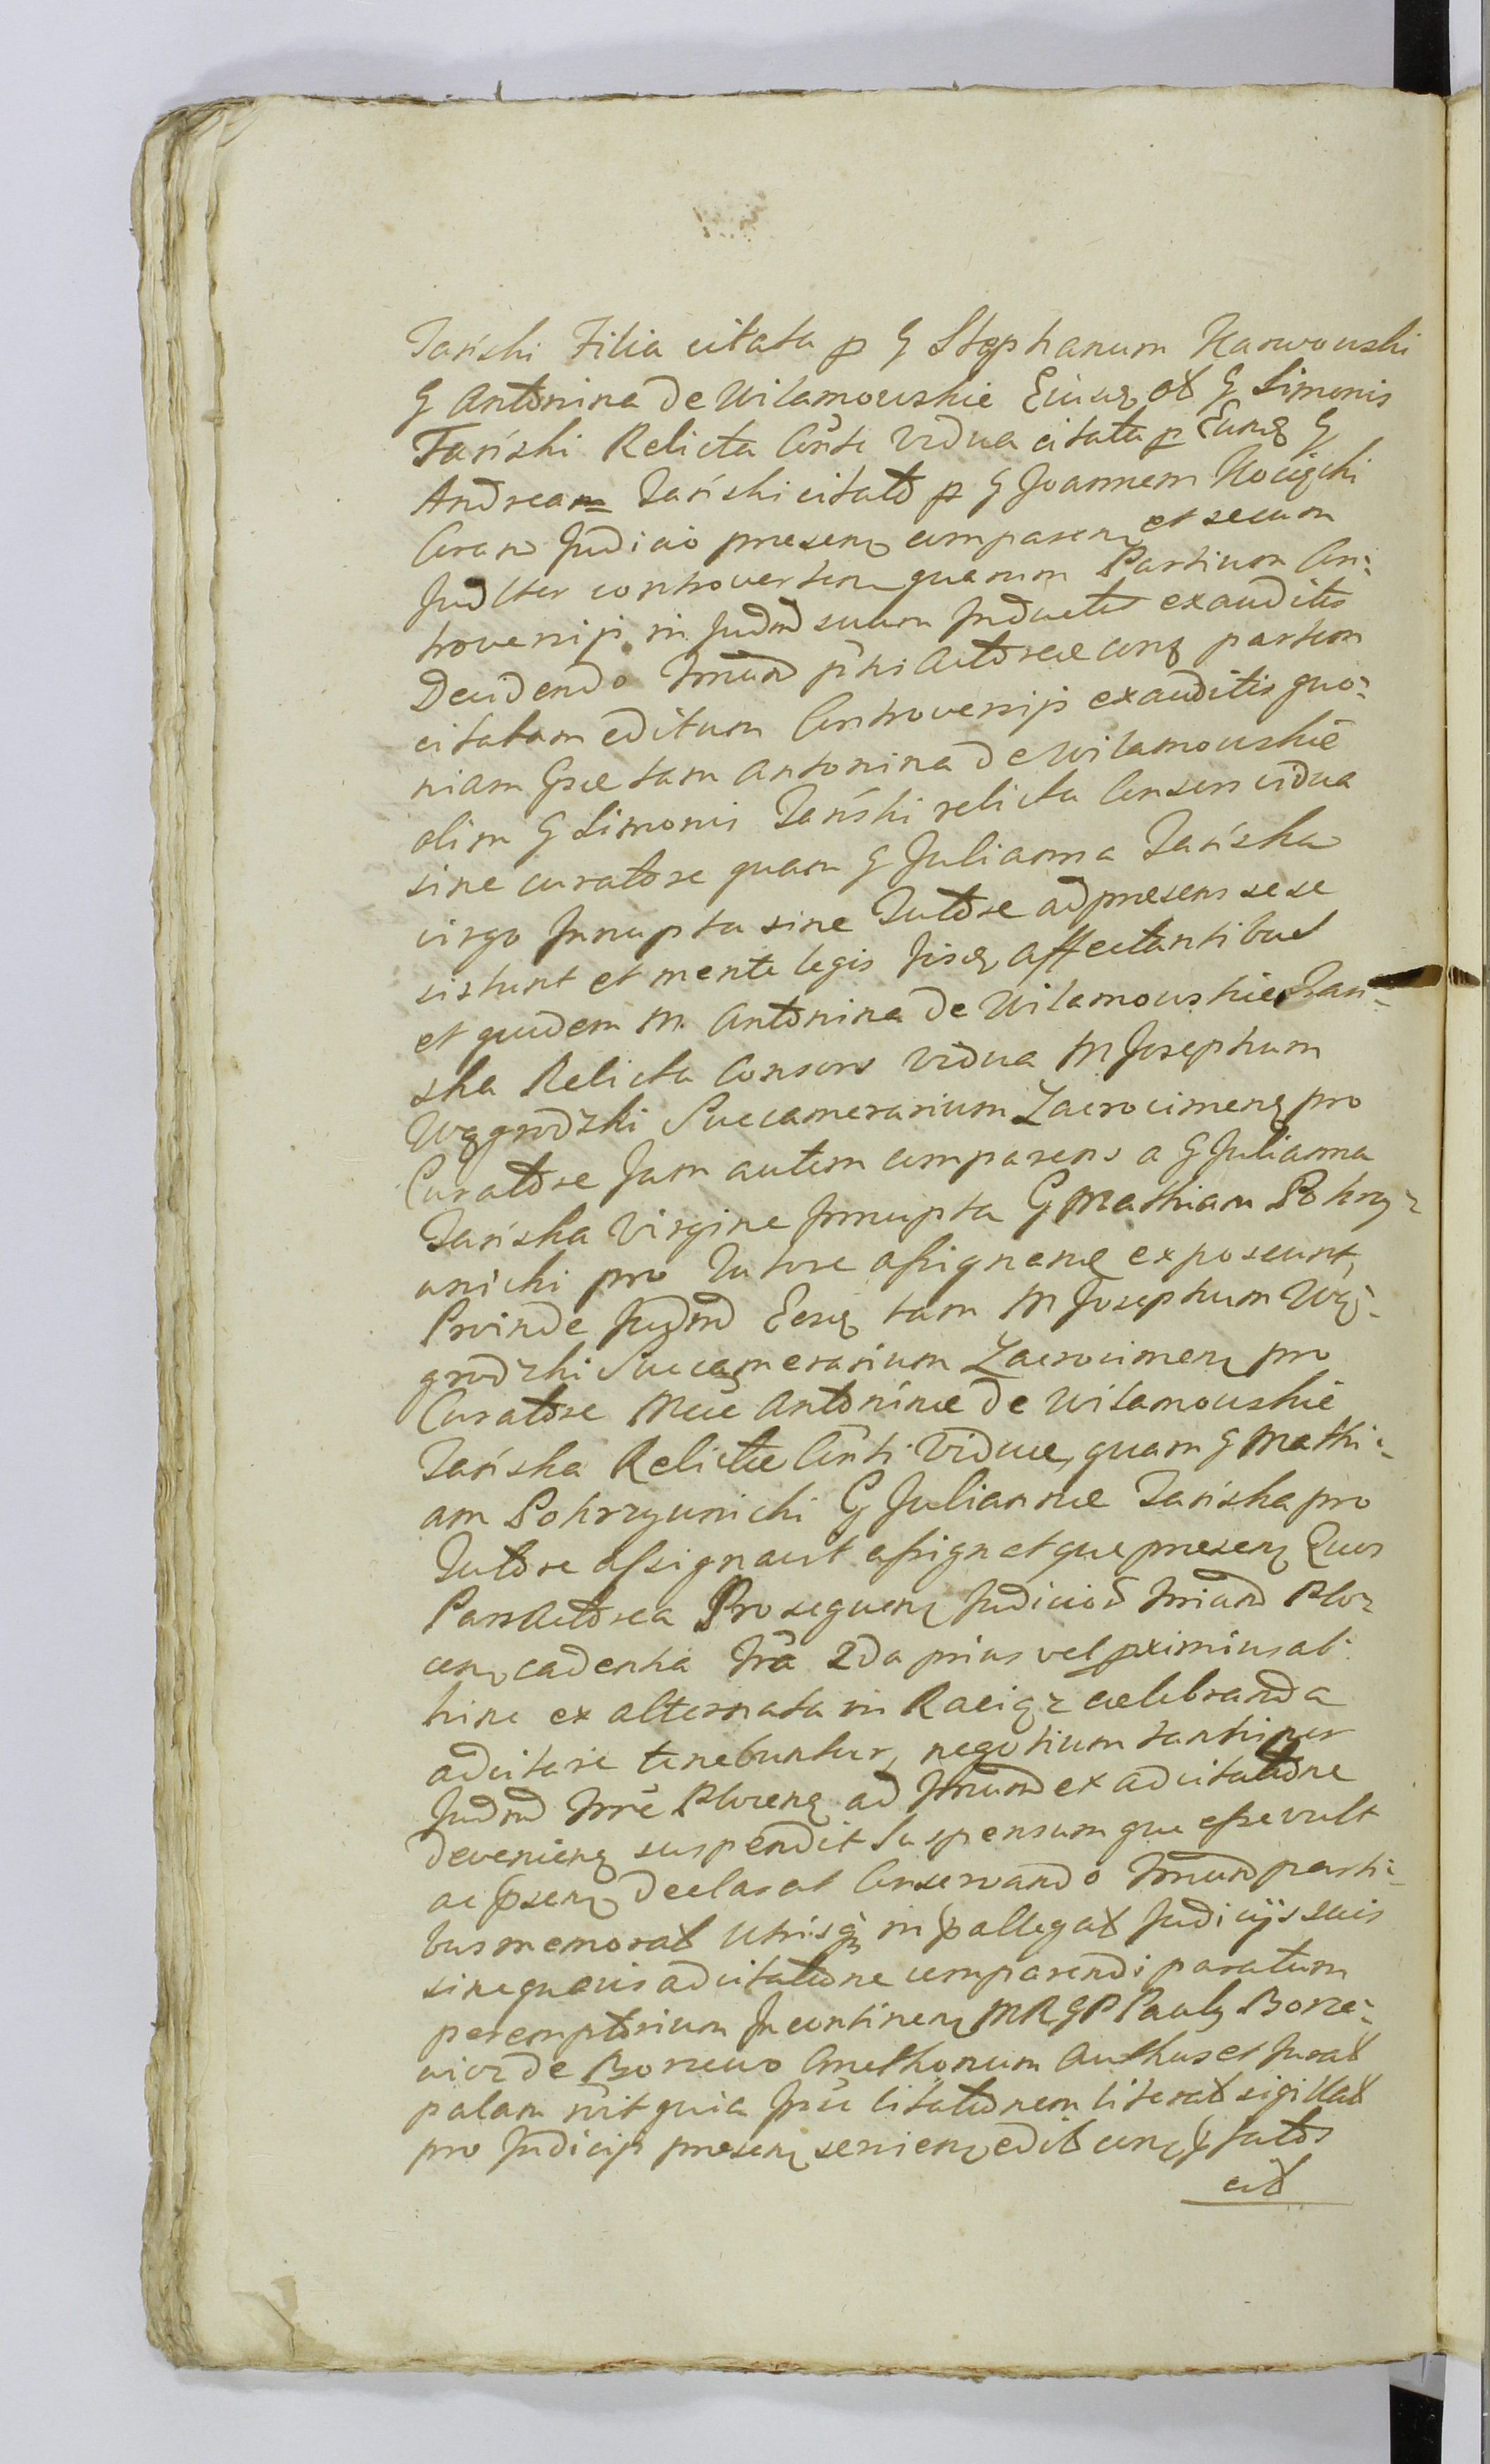 Tański Filia citata p G Stephanum Karwowski
G Antonina de Wilamowskie Eiusq olt G Simonis
Tański Relicta Consti Vidua citata p Eunq G
Andream Tański citato p G Joannem Kocięcki
Coram Judicio presenq comparenq et secum
Judlter controverten quarum Partium Con:
troversijs in Judnd suum Inductis exauditis
Decidendo Trmnd pnsti Actoreae conq partem
citatam editum Controversijs exauditis quo:
niam Gsae tam Antonina de Wilamowskie
olim G Simonis Tański relicta Consors vidua
sine curatore quam G Julianna Tańska
virgo Innupta sine Tutore ad presens sese
sistunt et mente legis Jisq affectantibus
et quidem M. Antonina de Wilamowskie Tań:
ska Relicta Consors vidua M Josephum
Węgrodzki Succamerarium Zacrocimenq pro
Curatore Jam autem comparens a G Julianna
Tańska Virgine Innupta G Mathiam Pokrzy:
wnicki pro Tutore assignanq exposcunt,
Proinde Judnd Eosq tam M Josephum Wę:
grodzki Succamerarium Zacrocimenq pro
Curatore Mcae Antoninae de Wilamowskie
Tańska Relictae Consti Viduae, quam G Mathi:
am Pokrzywnicki G Juliannae Tańska pro
Tutore assignavit assignatque presenq Quos
Pars Actorea Prosequenq Judicio Trriand Plo:
cenq cadentia Trra 2da prius vel pximius ab:
hinc ex alternata in Raciąz caelebranda
adcitare tenebuntur, negotium tantisper
Judnd Trre Plocenq ad Trmnd ex adcitatione
devenienq suspendit Suspensumque esse vult
ac psenq declarat Conservando Trmnd parti:
bus memorat utrisq in pallegat Judicijs suis
sine quavis adcitatione comparendi paratum
peremptorium In continenq MRGP Paulq Borze:
wicz de Borzewo Cmethonum Authus et Jurat
palam rcit quia Ipse Citationem literat sigillat
pro Judicijs presenq servienq edit conq p Jutos
cit